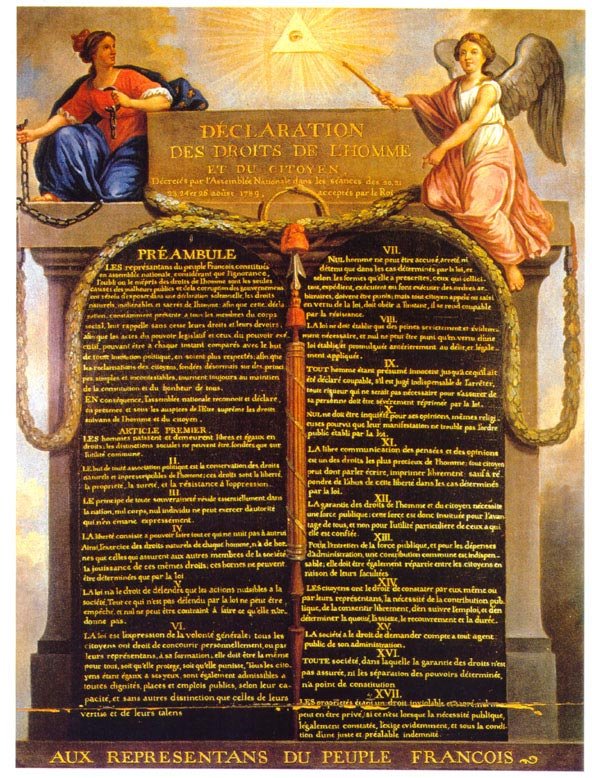 DÉCLARATION
DES DROITS DE L'HOMME
ET DU CITOYEN
Décretés par l'Assemblée Nationale dans les séances des 20, 21
23, 24 et 26 août 1789, acceptés par le Roi
PRÉAMBULE
LES représentans du peuple François, constitués
en assemblée nationale, considérant que l'ignorance,
l'oubli ou le mépris des droits de l'homme sont les seules
causes des malheurs publics et de la corruption des gouvernemens
ont résolu d'exposer dans une déclaration solemnelle, les droits
naturels, inaliénables et sacrés de l'homme; afin que cette décla
ration, constamment présente à tous les membres du corps
social, leur rappelle sans cesse leurs droits et leurs devoirs;
afin que les actes du pouvoir législatif et ceux du pouvoir exé
cutif, pouvant être à chaque instant comparés avec le but
de toute institution politique, en soient plus respectés; afin que
les réclamations des citoyens, fondées désormais sur des princi
pes simples et incontestables, tournent toujours au maintien
de la constitution et du bonheur de tous.
EN conséquence, l'assemblée nationale reconnoit et déclare,
en présence et sous les auspices de l'Etre suprême les droits
suivans de l'homme et du citoyen.
ARTICLE PREMIER.
LES hommes naissent et demeurent libres et égaux en
droits; les distinctions sociales ne peuvent être fondées que sur
l'utilité commune.
II.
LE but de toute association politique est la conservation des droits
naturels et inprescriptibles de l'homme; ces droits sont la liberté,
la propriété, la sureté, et la résistance à l'oppression.
III.
LE principe de toute souveraineté réside essentiellement dans
la nation, nul corps, nul individu ne peut exercer d'autorité
qui n'en émane expressement.
IV.
LA liberté consiste à pouvoir faire tout ce qui ne nuit pas à autrui
Ainsi, l'exercice des droits naturels de chaque homme, n'a de bor
nes que celles qui assurent aux autres membres de la société
la jouissance de ces mêmes droits; ces bornes ne peuvent
être déterminées que par la loi
V.
LA loi n'a le droit de défendre que les actions nuisibles à la
société. Tout ce qui n'est pas défendu par la loi ne peut être
empêché, et nul ne peut être contraint à faire ce qu'elle n'or
donne pas.
VI.
LA loi est l'expression de la volonté générale; tous les
citoyens ont droit de concourir personnellement, ou par
leurs représentans, à sa formation; elle doit être la même
pour tous, soit qu'elle protege, soit qu'elle punisse, Tous les cito
yens étant égaux à ses yeux, sont également admissibles à
toutes dignités, places et emplois publics, selon leur ca
pacité, et sans autres distinction que celles de leurs
vertus et de leurs talens
VII.
NUL homme ne peut être accusé, arreté ni
détenu que dans les cas déterminés par la loi, et
selon les formes qu'elle a prescrites, ceux qui sollici
tent, expédient, exécutent ou font exécuter des ordres ar
bitraires, doivent être punis; mais tout citoyen appelé ou saisi
en vertu de la loi, doit obéir à l'instant, il se rend coupable
par la résistance.
VIII.
LA loi ne doit établir que des peines strictement et évidem
ment nécessaires, et nul ne peut être puni qu'en vertu d'une
loi établie et promulguée antérierement au délit, et légale
ment appliquée.
IX.
TOUT homme étant présumé innocent jusqu'à ce qu'il ait
été déclaré coupable, s'il est jugé indispensable de l'arrêter,
toute rigueur qui ne serait pas nécessaire pour s'assurer de
sa personne doit être sévérement réprimée par la loi.
X.
NUL ne doit être inquiété pour ses opinions, mêmes religi
euses pourvu que leur manifestation ne trouble pas l'ordre
public établi par la loi.
XI.
LA libre communication des pensées et des opinions
est un des droits les plus precieux de l'homme; tout citoyen
peut donc parler écrire, imprimer librement: sauf à ré
pondre de l'abus de cette liberté dans les cas déterminés
par la loi.
XII.
LA garantie des droits de l'homme et du citoyen nécessite
une force publique; cette force est donc instituée pour l'avan
tage de tous, et non pour l'utilité particuliere de ceux a qui
elle est confiée.
XIII.
Pour l'entretien de la force publique, et pour les dépenses
d'administration, une contribution commune est indispen
sable; elle doit être également répartie entre les citoyens en
raison de leurs facultées
XIV.
LES citoyens ont le droit de constater par eux même ou
par leurs représentans, la nécessité de la contribution pub
lique, de la consentir librement, d'en suivre l'emploi, et d'en
déterminer la quotité, l'assiette, le recouvrement et la durée.
XV.
LA société a le droit de demander compte a tout agent
public de son administration.
XVI.
TOUTE société, dans laquelle la garantie des droits n'est
pas assurée, ni les séparation des pouvoirs déterminée,
n'a point de constitution
XVII.
LES propriétés étant un droit inviolable et sacré, nul ne
peut en être privé, si ce n'est lorsque la nécessité publique,
légalement constatée, l'exige évidemment, et sous la condi
tion d'une juste et préalable indemnité.
AUX REPRESENTANS DU PEUPLE FRANCOIS